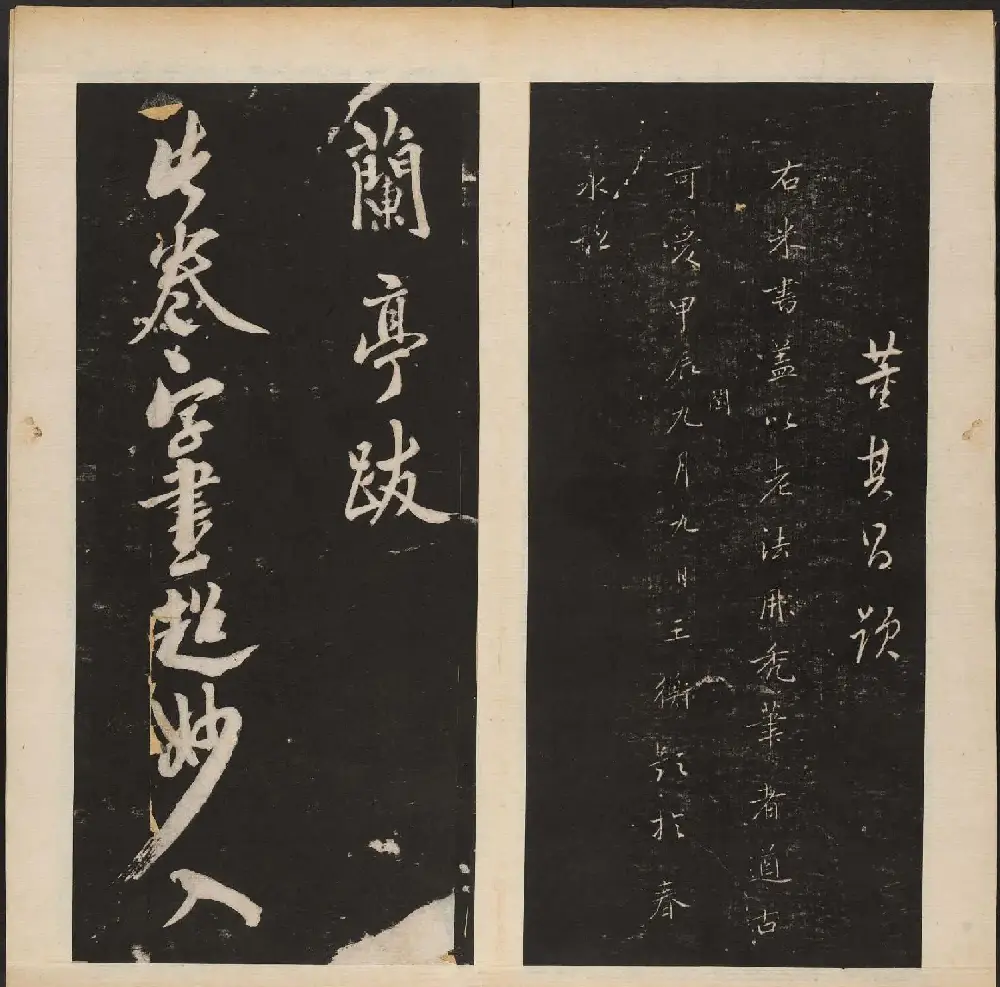 董其昌題
右米書蓋以老法用禿筆者遒古
可愛甲辰閏九月九日王衡題於春
水
蘭亭跋
此卷字書超妙入